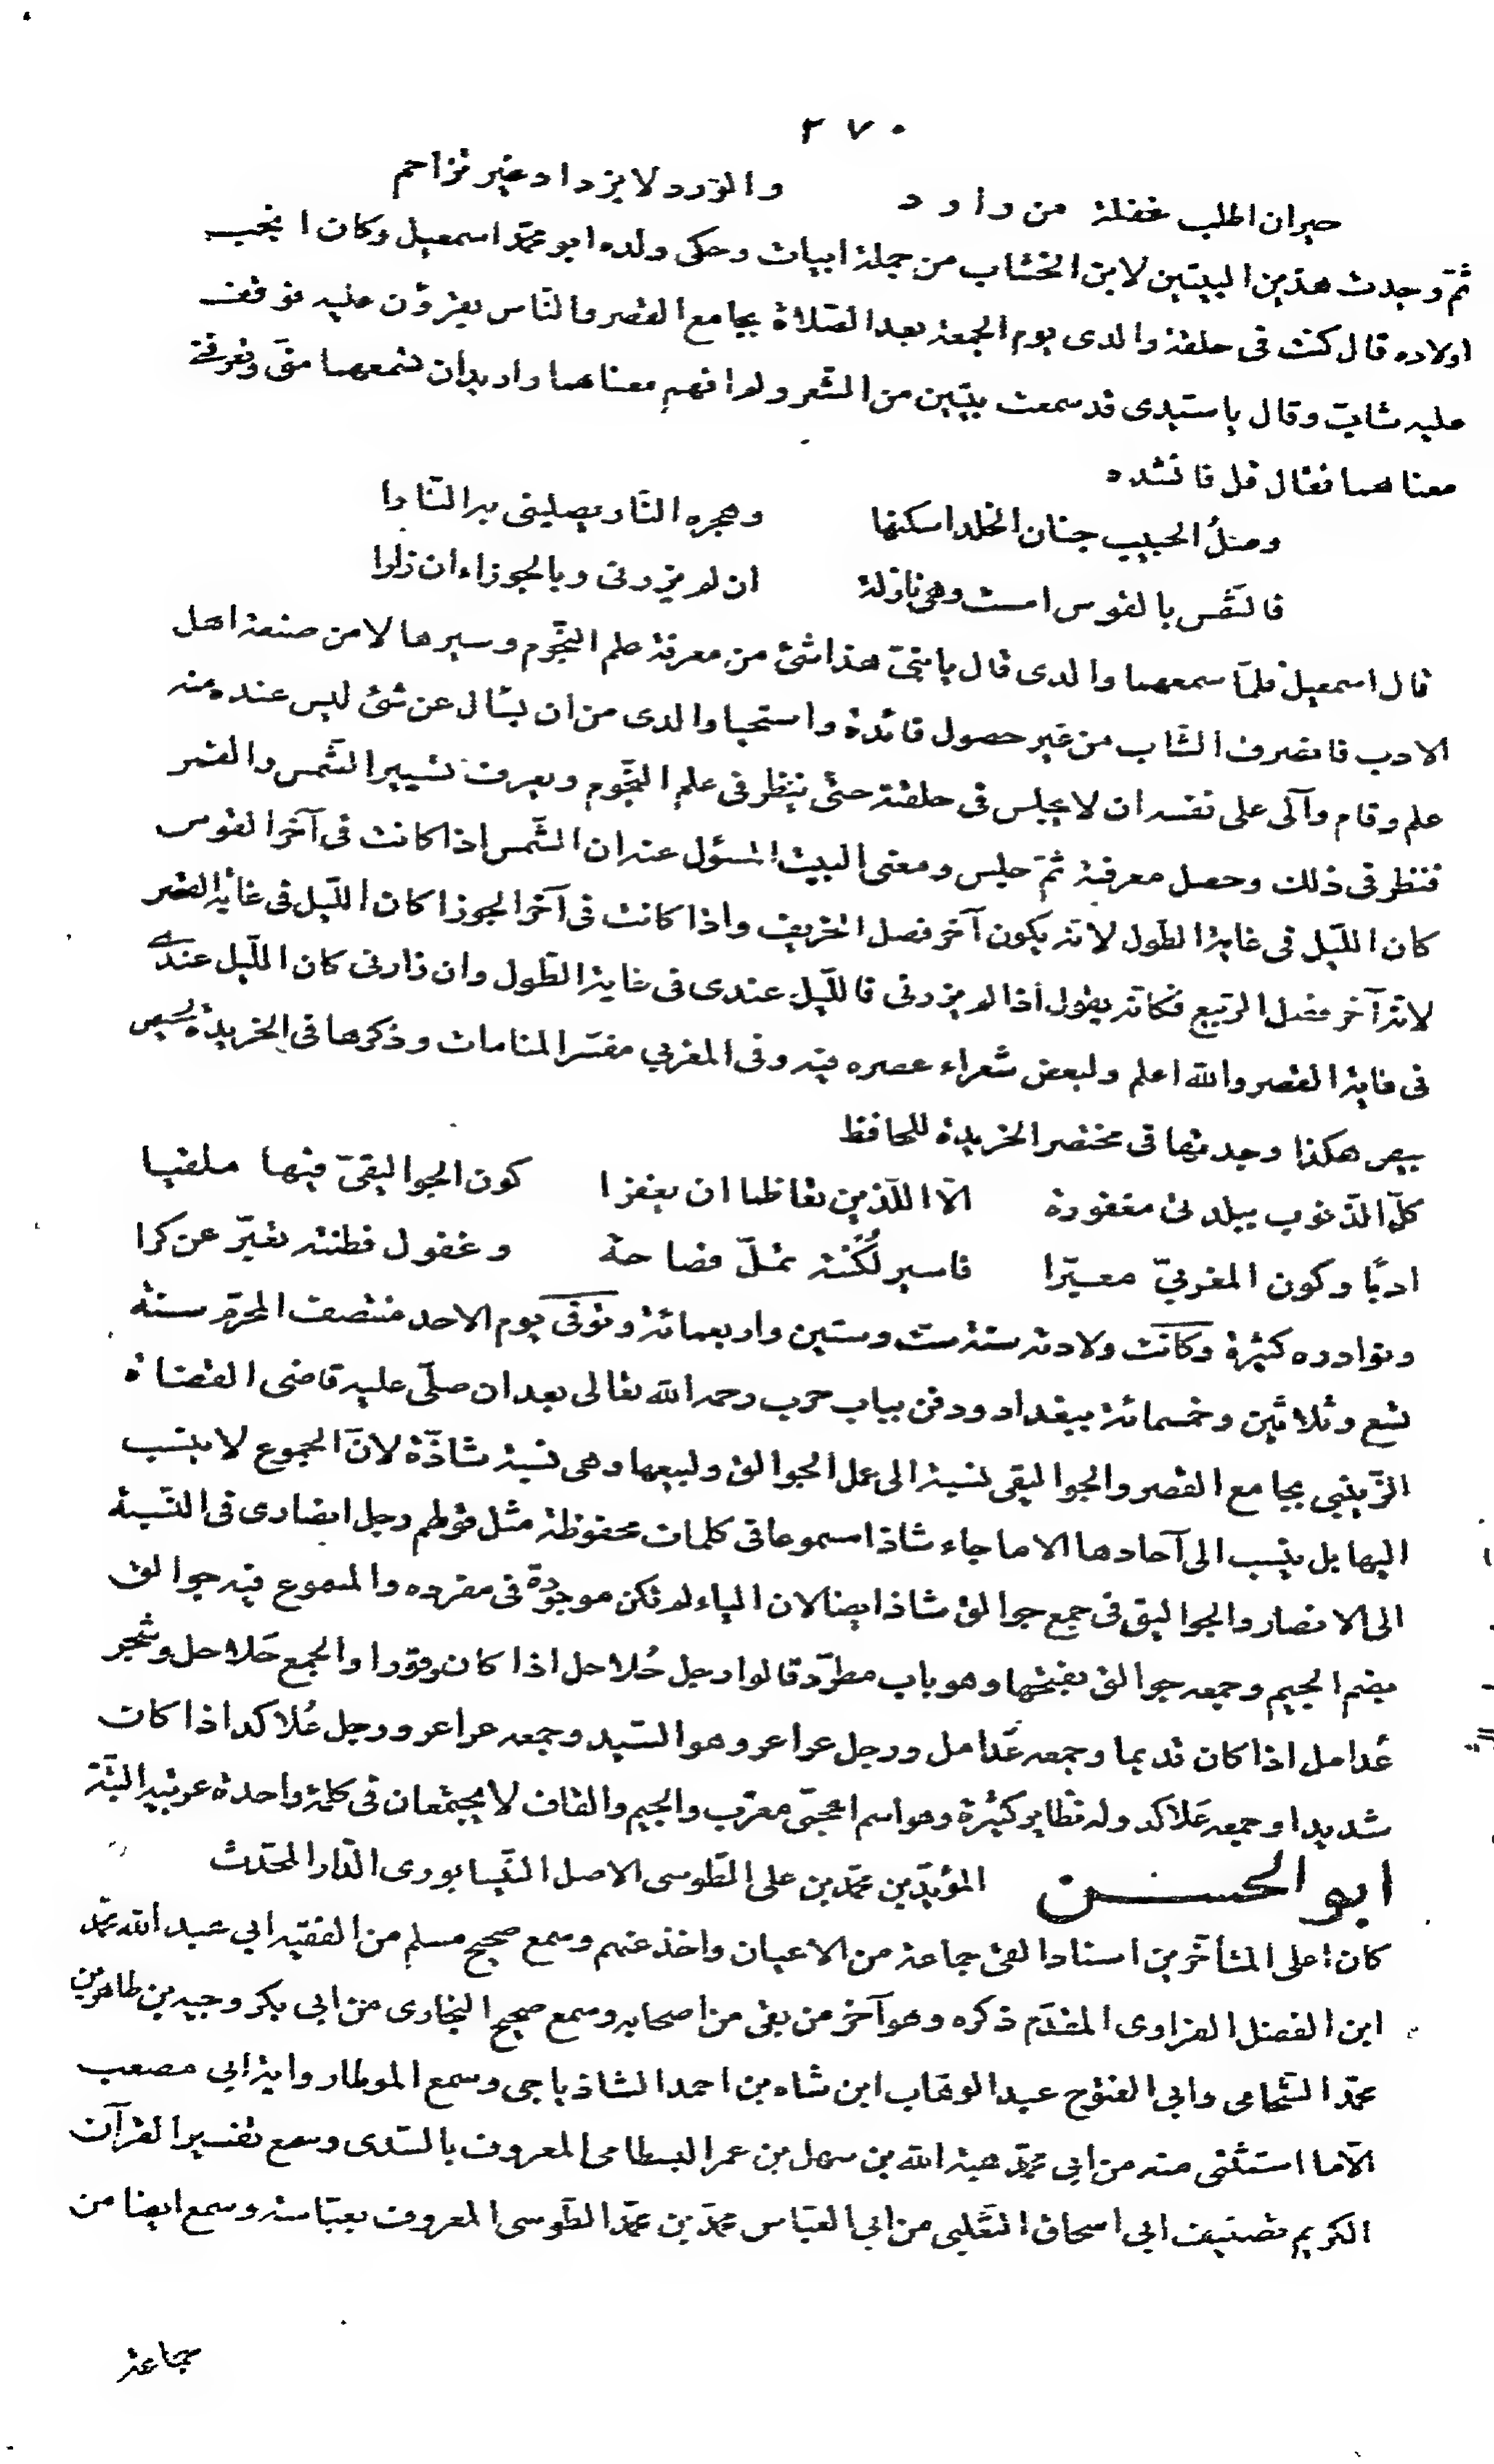 ٢٧٠
حيران اطلب غفلة من وارد والورد لا يزداد غير تزاحم
ثمّ وجدت هذين البيتين لابن الخشّاب من جملة ابيات وحكى ولده ابو محمّد اسمعيل وكان انجب
اولاده قال كنت فى حلقة والدى يوم الجمعة بعد الصّلاة بجامع القصر والنّاس يقرؤن عليه فوقف
عليه شابّ وقال يا سيّدى قد سمعت بيتين من الشّعر ولم افهم معناهما واريد ان تسمعهما منّى وتعرفنى
معناهما فقال قل فانشده
وصلُ الحبيب جنان الخلد اسكنها وهجره النّار يصلينى به النّارا
فالشّمس بالقوس امست وهى نازلة ان لم يزرنى وبالجوزاء ان زارا
قال اسمعيل فلمّا سمعهما والدى قال يا بنىّ هذا شئ من معرفة علم النّجوم وسيرها لا من صنعة اهل
الادب فانصرف الشّاب من غير حصول فائدة واستحيا والدى من ان يسأل عن شئ ليس عنده منه
علم وقام وآلى على نفسه ان لا يجلس فى حلقته حتّى ينظر فى علم النّجوم ويعرف تسيير الشّمس والقمر
فنظر فى ذلك وحصل معرفته ثمّ جلس ومعنى البيت المسؤل عنه ان الشّمس اذا كانت فى آخر القوس
كان اللّيل فى غاية الطّول لانّه يكون آخر فصل الخريف واذا كانت فى آخر الجوزا كان اللّيل فى غاية القصر
لانّه آخر فصل الرّبيع فكانّه يقول اذا لم يزرنى فاللّيل عندى فى غاية الطّول وان زارنى كان اللّيل عندى
فى غاية القصر والله اعلم ولبعض شعراء عصره فيه وفى المغربي مفسّر المنامات وذكرها فى الخريدة لحيص
بيص هكذا وجدتها فى مختصر الخريدة للحافظ
كلّ الذّنوب ببلدتى مغفورة الّا اللّذين تعاظما ان يغفرا كون الجواليقىّ فيها ملقيا
ادبًا وكون المغربيّ معبّرا فاسير لُكْنته تملّ فصاحة وغفول فطنته تعبّر عن كرا
ونوادره كثيرة وكانت ولادته سنة ستّ وستين واربعمائة وتوفى يوم الاحد منتصف المحرّم سنة
تسع وثلاثين وخمسمائة ببغداد ودفن بباب حرب رحمه الله تعالى بعد ان صلّى عليه قاضى القضاة
الزّينبي بجامع القصر والجواليقى نسبة الى عمل الجوالق وليبعها وهى نسبة شاذّة لانّ الجموع لا ينسب
اليها بل ينسب الى آحادها الا ما جاء شاذا مسموعا فى كلمات محفوظة مثل قولهم رجل انصارى فى النّسبة
الى الانصار والجواليق فى جمع جوالق شاذ ايضا لان الياء لم تكن موجودة فى مفرده والمسموع فيه جوالق
بضم الجيم وجمعه جوالق بفتحها وهو باب مطرّد قالوا رجل حُلاحل اذا كان وقورا والجمع حَلاحل وشجر
عُدامل اذا كان قديما وجمعه عَدامل ورجل عراعر وهو السّيد وجمعه عراعر ورجل عُلاكد اذا كان
شديدا وجمعه عَلاكد وله نظاير كثيرة وهو اسم اعجمىّ معرّب والجيم والقاف لا يجتمعان فى كلمة واحدة عربيه البتّة
ابو الحسن المؤيّد بن محمّد بن على الطّوسى الاصل النّيسابورى الدّار المحدّث
كان اعلى المتأخّرين اسنادا لقى جماعة من الاعيان واخذ عنهم وسمع صحيح مسلم من الفقيه ابي عبد الله محمّد
ابن الفضل الفراوى المقدّم ذكره وهو آخر من بقى من اصحابه وسمع صحيح البخارى من ابى بكر وجيه بن طاهر بن
محمّد الشّحامى وابي الفتوح عبد الوهّاب ابن شاه بن احمد الشاذياجى وسمع الموطا رواية ابي مصعب
الّا ما استثنى منه من ابي محمّد هبة الله بن سهل بن عمر البسطامى المعروف بالسّدى وسمع تفسير القرآن
الكريم تصنيف ابى اسحاق الثّعلبى من ابى العبّاس محمّد بن محمّد الطّوسى المعروف بعبّاسة وسمع ايضا من
جماعة